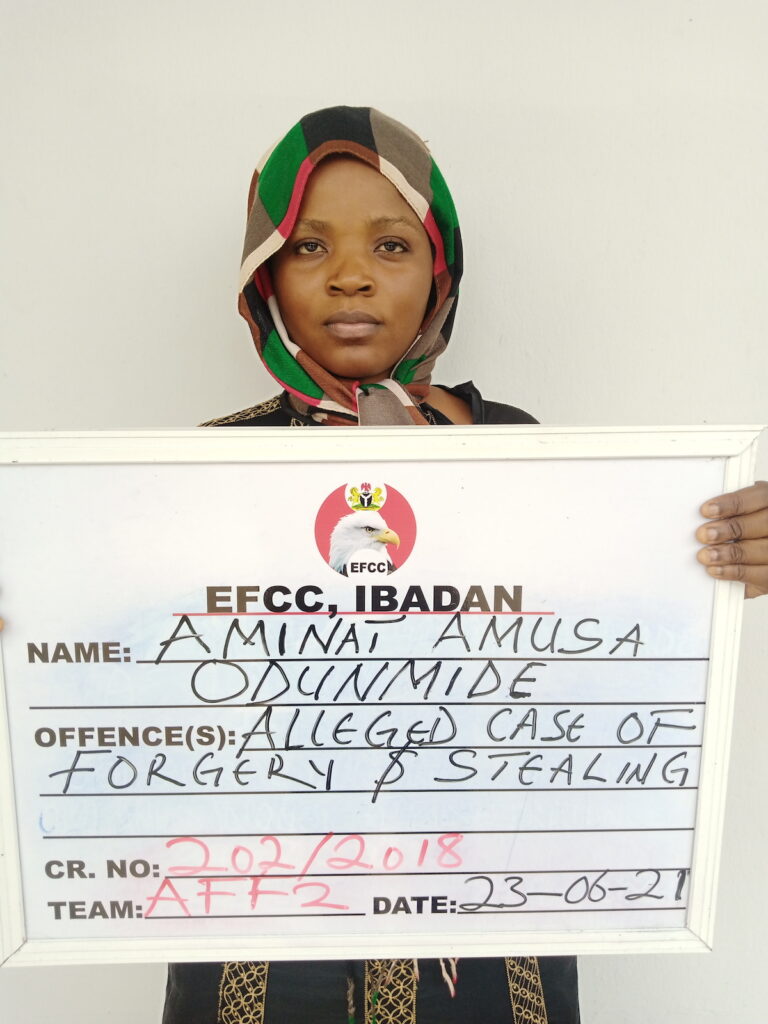 EFCC
EFCC, IBADAN
NAME: AMINAT AMUSA
ODUNMIDE
OFFENCE(S): ALLEGED CASE OF
FORGERY $ STEALING
CR. NO: 202/2018
TEAM: AFF2 DATE: 23-06-21